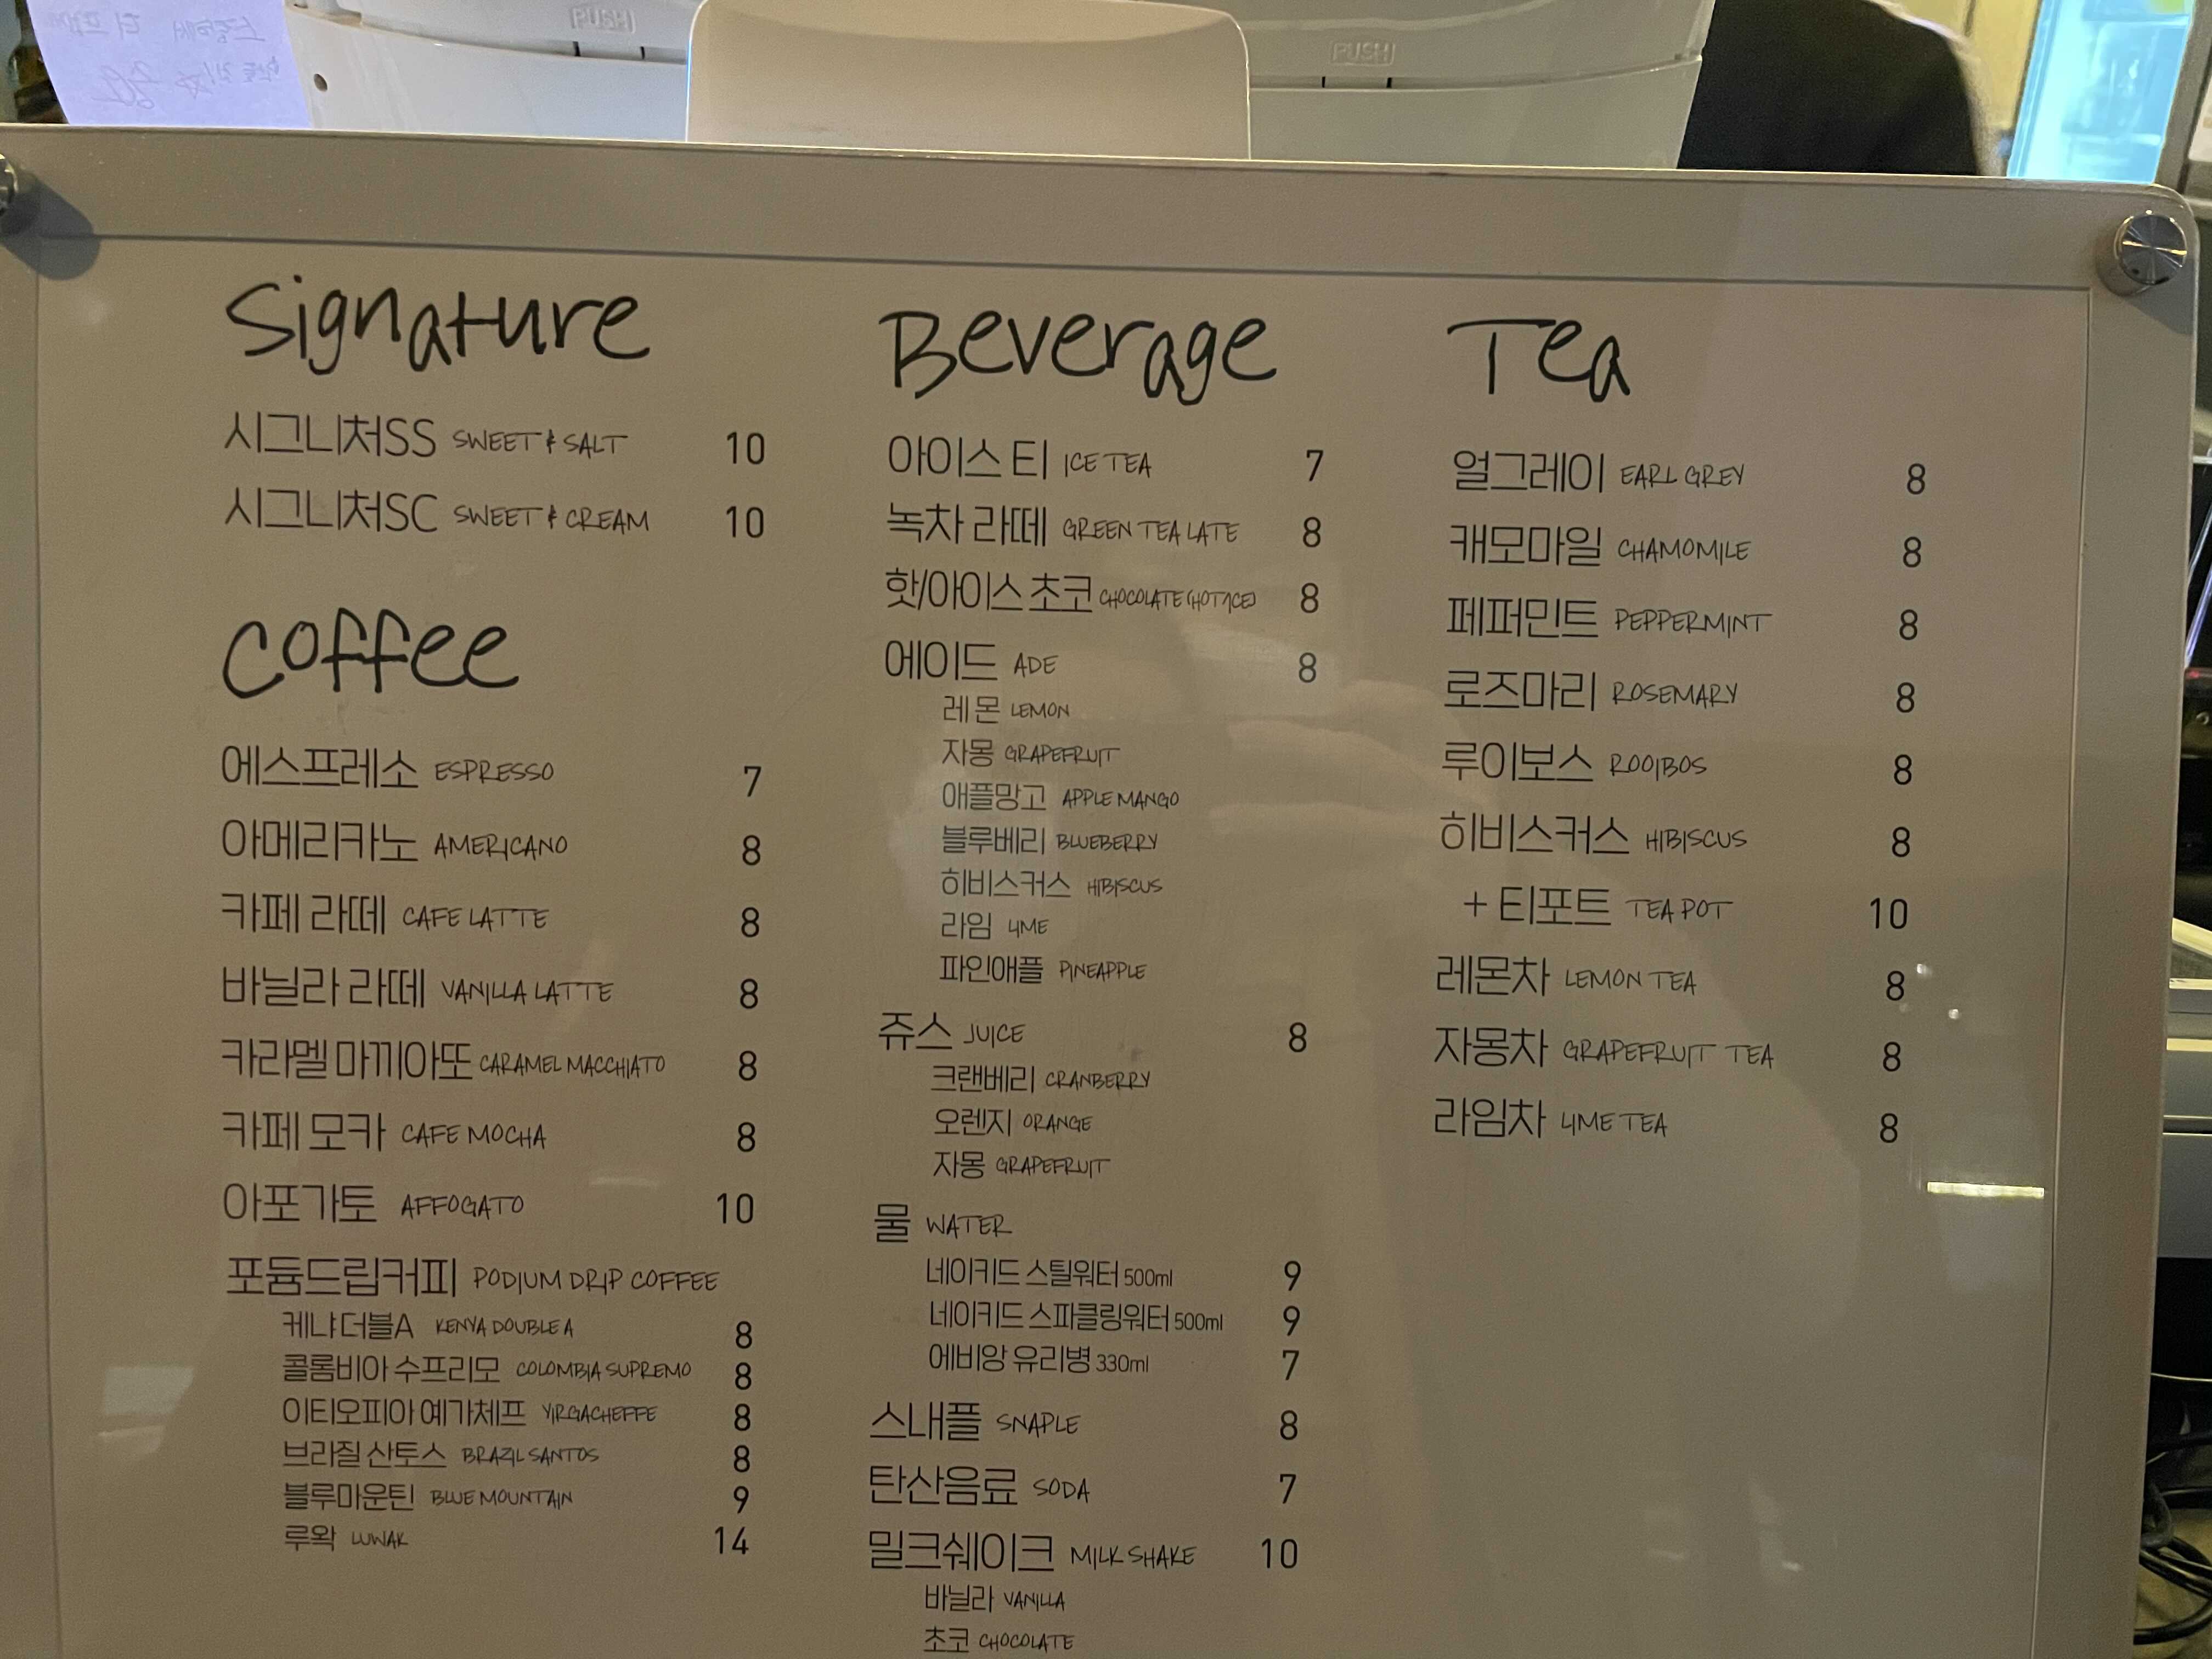 PUSH
PUSH
Signature
시그니처SS SWEET & SALT 10
시그니처SC SWEET & CREAM 10
Coffee
에스프레소 ESPRESSO 7
아메리카노 AMERICANO 8
카페 라떼 CAFE LATTE 8
바닐라 라떼 VANILLA LATTE 8
카라멜 마끼아또 CARAMEL MACCHIATO 8
카페 모카 CAFE MOCHA 8
아포가토 AFFOGATO 10
포듐드립커피 PODIUM DRIP COFFEE
케냐더블A KENYA DOUBLE A 8
콜롬비아 수프리모 COLOMBIA SUPREMO 8
이티오피아 예가체프 YIRGACHEFFE 8
브라질 산토스 BRAZIL SANTOS 8
블루마운틴 BLUE MOUNTAIN 9
루왁 LUWAK 14
Beverage
아이스 티 ICE TEA 7
녹차 라떼 GREEN TEA LATE 8
핫/아이스 초코 CHOCOLATE (HOT/ICE) 8
에이드 ADE 8
레몬 LEMON
자몽 GRAPEFRUIT
애플망고 APPLE MANGO
블루베리 BLUEBERRY
히비스커스 HIBISCUS
라임 LIME
파인애플 PINEAPPLE
쥬스 JUICE 8
크랜베리 CRANBERRY
오렌지 ORANGE
자몽 GRAPEFRUIT
물 WATER
네이키드 스틸워터 500ml 9
네이키드 스파클링워터 500ml 9
에비앙 유리병 330ml 7
스내플 SNAPLE 8
탄산음료 SODA 7
밀크쉐이크 MILK SHAKE 10
바닐라 VANILLA
초코 CHOCOLATE
Tea
얼그레이 EARL GREY 8
캐모마일 CHAMOMILE 8
페퍼민트 PEPPERMINT 8
로즈마리 ROSEMARY 8
루이보스 ROOIBOS 8
히비스커스 HIBISCUS 8
+ 티포트 TEA POT 10
레몬차 LEMON TEA 8
자몽차 GRAPEFRUIT TEA 8
라임차 LIME TEA 8